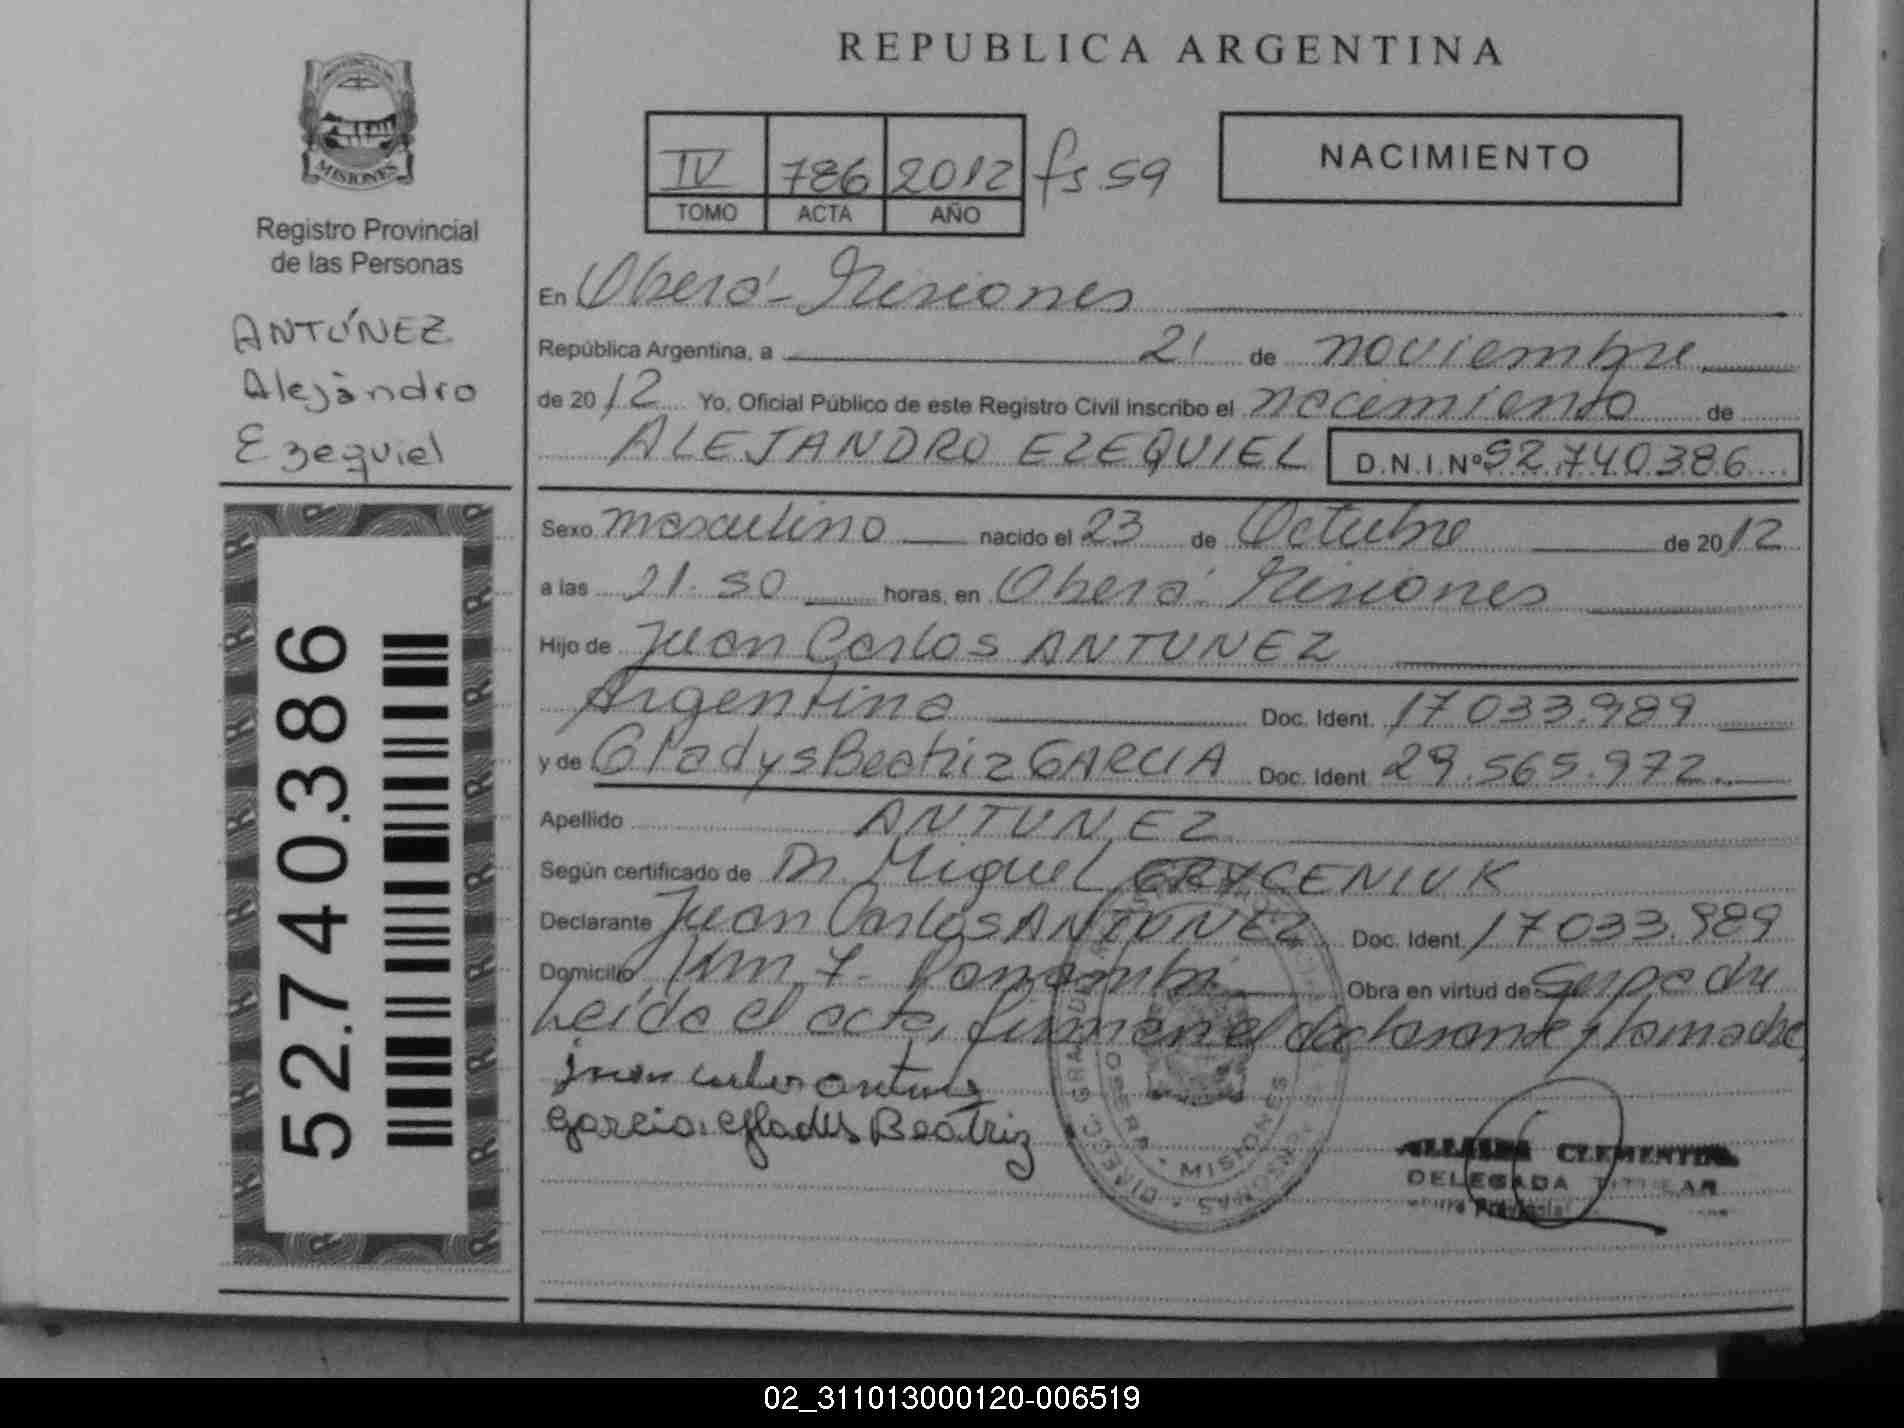 REPUBLICA ARGENTINA
PROVINCIA DE
MISIONES
Registro Provincial
de las Personas
ANTÚNEZ
Alejandro
Ezequiel
52.740.386
IV 786 2012 fs 59
TOMO ACTA AÑO
NACIMIENTO
En Oberá - Misiones
República Argentina, a 21 de noviembre
de 2012 Yo, Oficial Público de este Registro Civil inscribo el nacimiento de
ALEJANDRO EZEQUIEL D.N.I.Nº 52.740.386
Sexo masculino nacido el 23 de Octubre de 2012
a las 21.50 horas, en Oberá - Misiones
Hijo de Juan Carlos ANTUNEZ
Argentina Doc. Ident. 17033.989
y de Gladys Beatriz GARCIA Doc. Ident 29.565.972.
Apellido ANTUNEZ
Según certificado de Dr. Miguel GRYCENIUK
Declarante Juan Carlos ANTUNEZ Doc. Ident. 17033.989
Domicilio Km 7. Panambí Obra en virtud de su padre
Leída el acta, firman el declarante y la madre
juan carlos antunez
Garcia. Gladis Beatriz
OBERA • MISIONES
CLEMENTINA
DELEGADA TITULAR
Provincial
02_311013000120-006519